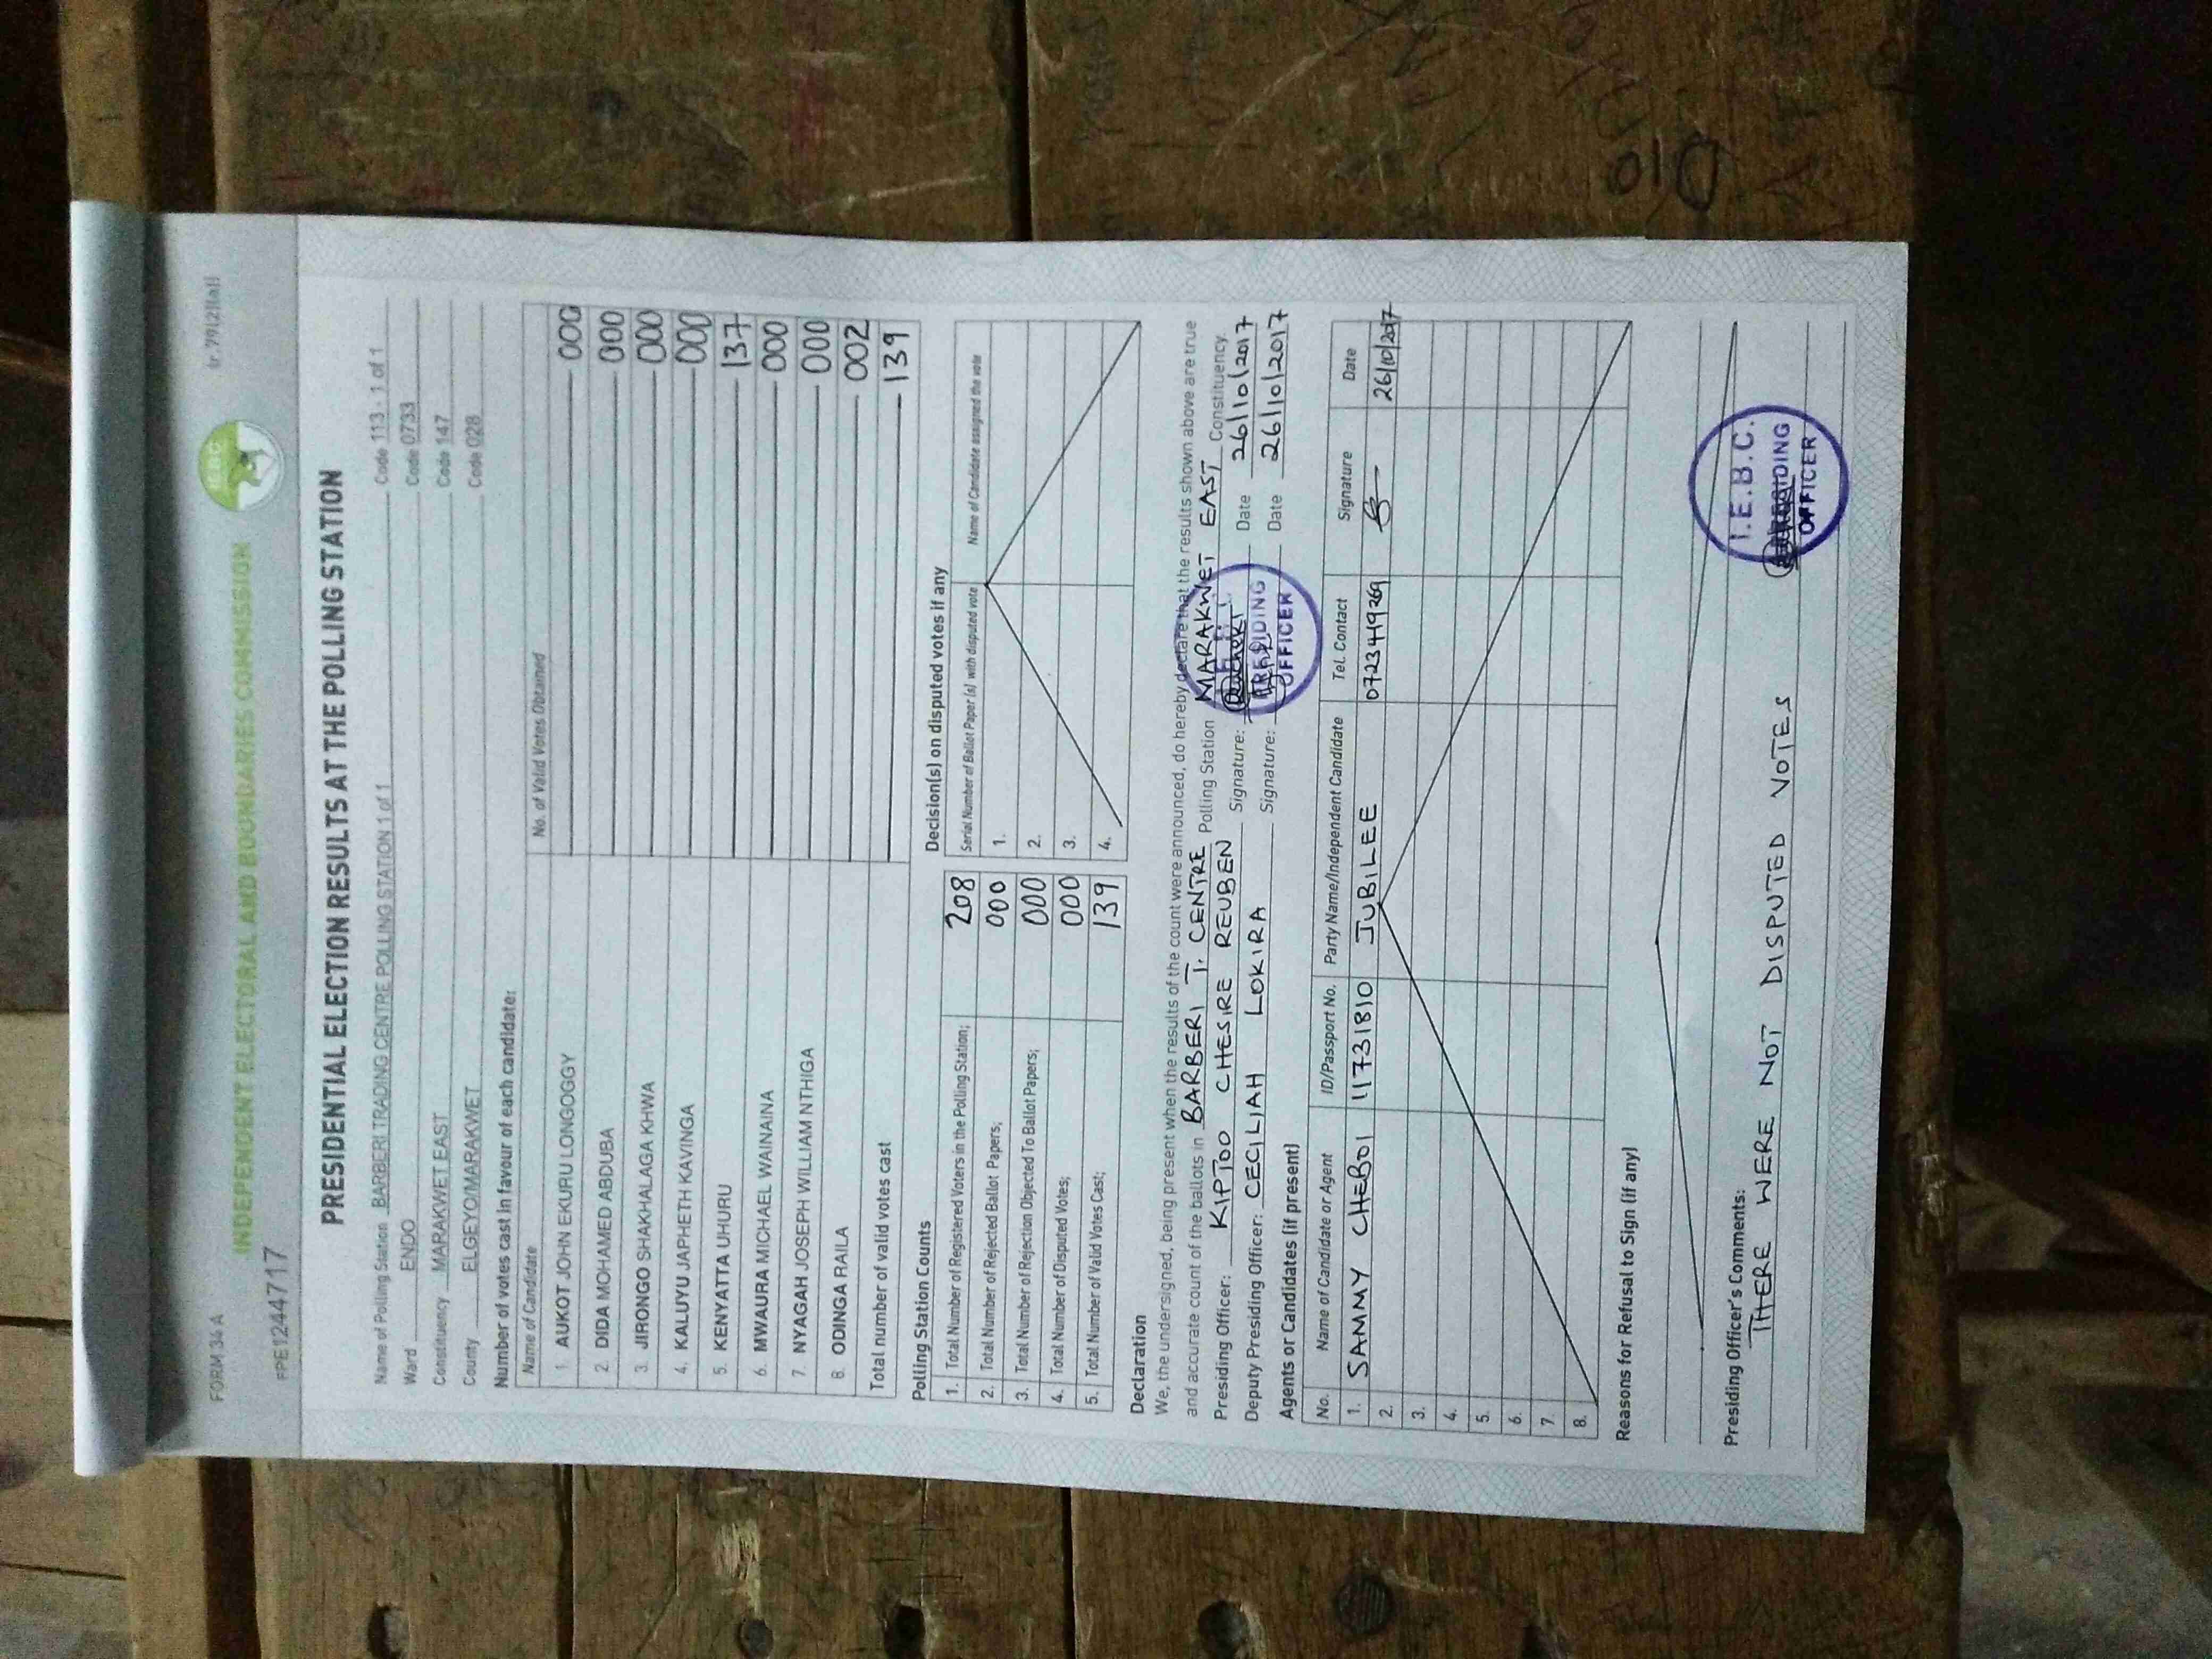 FORM 34 A
INDEPENDENT ELECTORAL AND BOUNDARIES COMMISSION
FPE1244717
PRESIDENTIAL ELECTION RESULTS AT THE POLLING STATION
Name of Polling Station BARBERI TRADING CENTRE POLLING STATION 1 of 1 Code 113 - 1 of 1
Ward ENDO Code 0733
Constituency MARAKWET EAST Code 147
County ELGEYO/MARAKWET Code 028
Number of votes cast in favour of each candidate:
Name of Candidate No. of Valid Votes Obtained
1. AUKOT JOHN EKURU LONGOGGY 000
2. DIDA MOHAMED ABDUBA 000
3. JIRONGO SHAKHALAGA KHWA 000
4. KALUYU JAPHETH KAVINGA 000
5. KENYATTA UHURU 137
6. MWAURA MICHAEL WAINAINA 000
7. NYAGAH JOSEPH WILLIAM NTHIGA 000
8. ODINGA RAILA 002
Total number of valid votes cast 139
Polling Station Counts
1. Total Number of Registered Voters in the Polling Station; 208
2. Total Number of Rejected Ballot Papers; 000
3. Total Number of Rejection Objected To Ballot Papers; 000
4. Total Number of Disputed Votes; 000
5. Total Number of Valid Votes Cast; 139
Decision(s) on disputed votes if any
Serial Number of Ballot Paper (s) with disputed vote Name of Candidate assigned the vote
1.
2.
3.
4.
Declaration
We, the undersigned, being present when the results of the count were announced, do hereby declare that the results shown above are true
and accurate count of the ballots in BARBERI T. CENTRE Polling Station MARAKWET EAST Constituency.
Presiding Officer: KIPTOO CHESIRE REUBEN Signature: Date 26/10/2017
Deputy Presiding Officer: CECILIAH LOKIRA Signature: Date 26/10/2017
PRESIDING
OFFICER
Agents or Candidates (if present)
No. Name of Candidate or Agent ID/Passport No. Party Name/Independent Candidate Tel. Contact Signature Date
1. SAMMY CHEBOI 11731810 JUBILEE 0723449269 26/10/2017
2.
3.
4.
5.
6.
7.
8.
Reasons for Refusal to Sign (if any)
Presiding Officer's Comments:
THERE WERE NOT DISPUTED VOTES
I.E.B.C.
PRESIDING
OFFICER